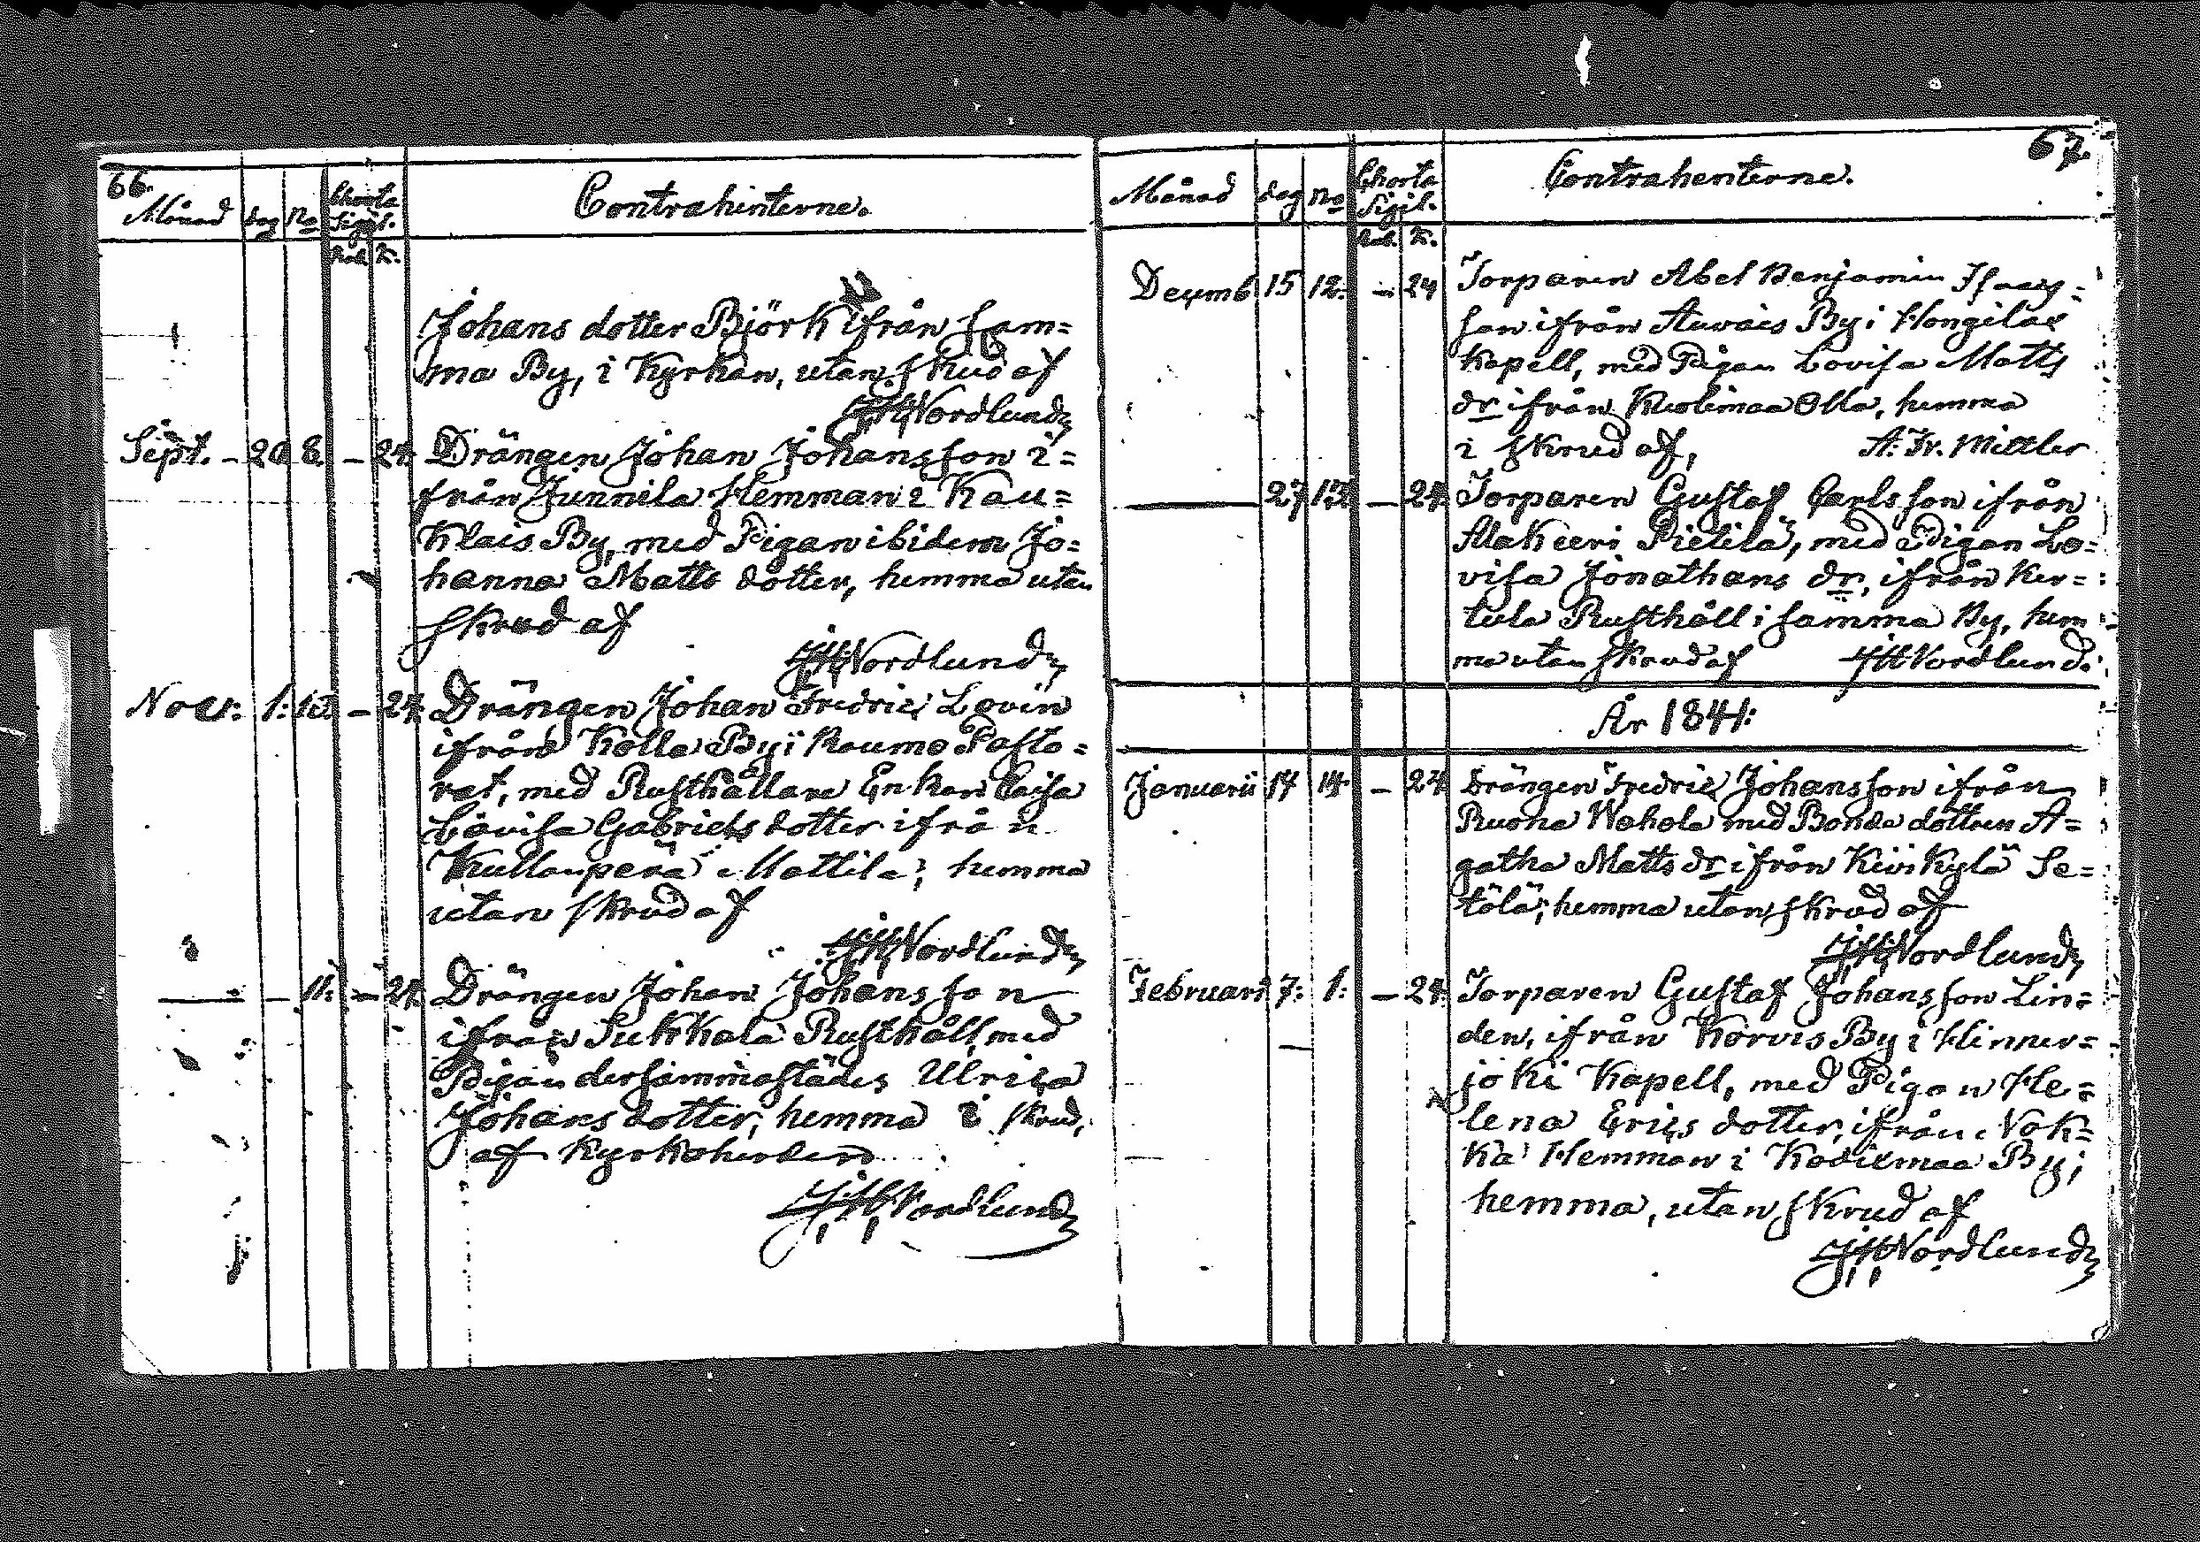 66.
Månad dag No Charta Sigil. Contrahenterne.
Rub. K.
Johans dotter Björk ifrån sam=
ma By, i Kyrkan, utan skrud af
JHNordlund
Sept. - 20 8. - 24. Drängen Johan Johansson i=
från Junnila Hemman i Kau=
klais By, med Pigan ibidem Jo=
hanna Matts dotter, hemma utan
skrud af
JHNordlund
Novr: 1: 10. - 24. Drängen Johan Fredric Lovin
ifrån Kolla By i Raumo Pasto=
rat, med Rusthållare Enkan Caisa
Lovisa Gabriels dotter ifrån
Kullanperä Mattila; hemma
utan skrud af
JHNordlund
— - 11. - 24. Drängen Johan Johansson
ifrån Sukkala Rusthåll, med
Pigan dersammastädes Ulrica
Johans dotter, hemma i skrud,
af Kyrkoherden
JHNordlund
67.
Månad dag No Charta Sigil. Contrahenterne.
Rub. K.
15 12. - 24 Torparen Abel Benjamin Isaac=
son ifrån By i Hongilax
Kapell, med Pigan Lovisa Matts
dr ifrån Kuolimaa Olla, hemma
i skrud af, A. Fr. Mittler
— 27 - 24. Torparen Gustaf Carlsson ifrån
Alakeeri Pietilä, med Pigan Lo=
visa Jonathans dr, ifrån Ker=
tula Rusthåll i samma By, hem
ma utan skrud af JHNordlund.
År 1841:
Januarii 17 14. - 24 Drängen Fredric Johansson ifrån
Ruona Wahola med Bonde dottren A=
gatha Matts dr ifrån Kivikylä Se=
tälä; hemma utan skrud af
JHNordlund
Februari 7: 1: - 24. Torparen Gustaf Johansson Lin=
den, ifrån Korvis By i Hinner=
joki Kapell, med Pigan He=
lena Erics dotter, ifrån Nok=
ka Hemman i Kodixmaa By;
hemma, utan skrud af
JHNordlund